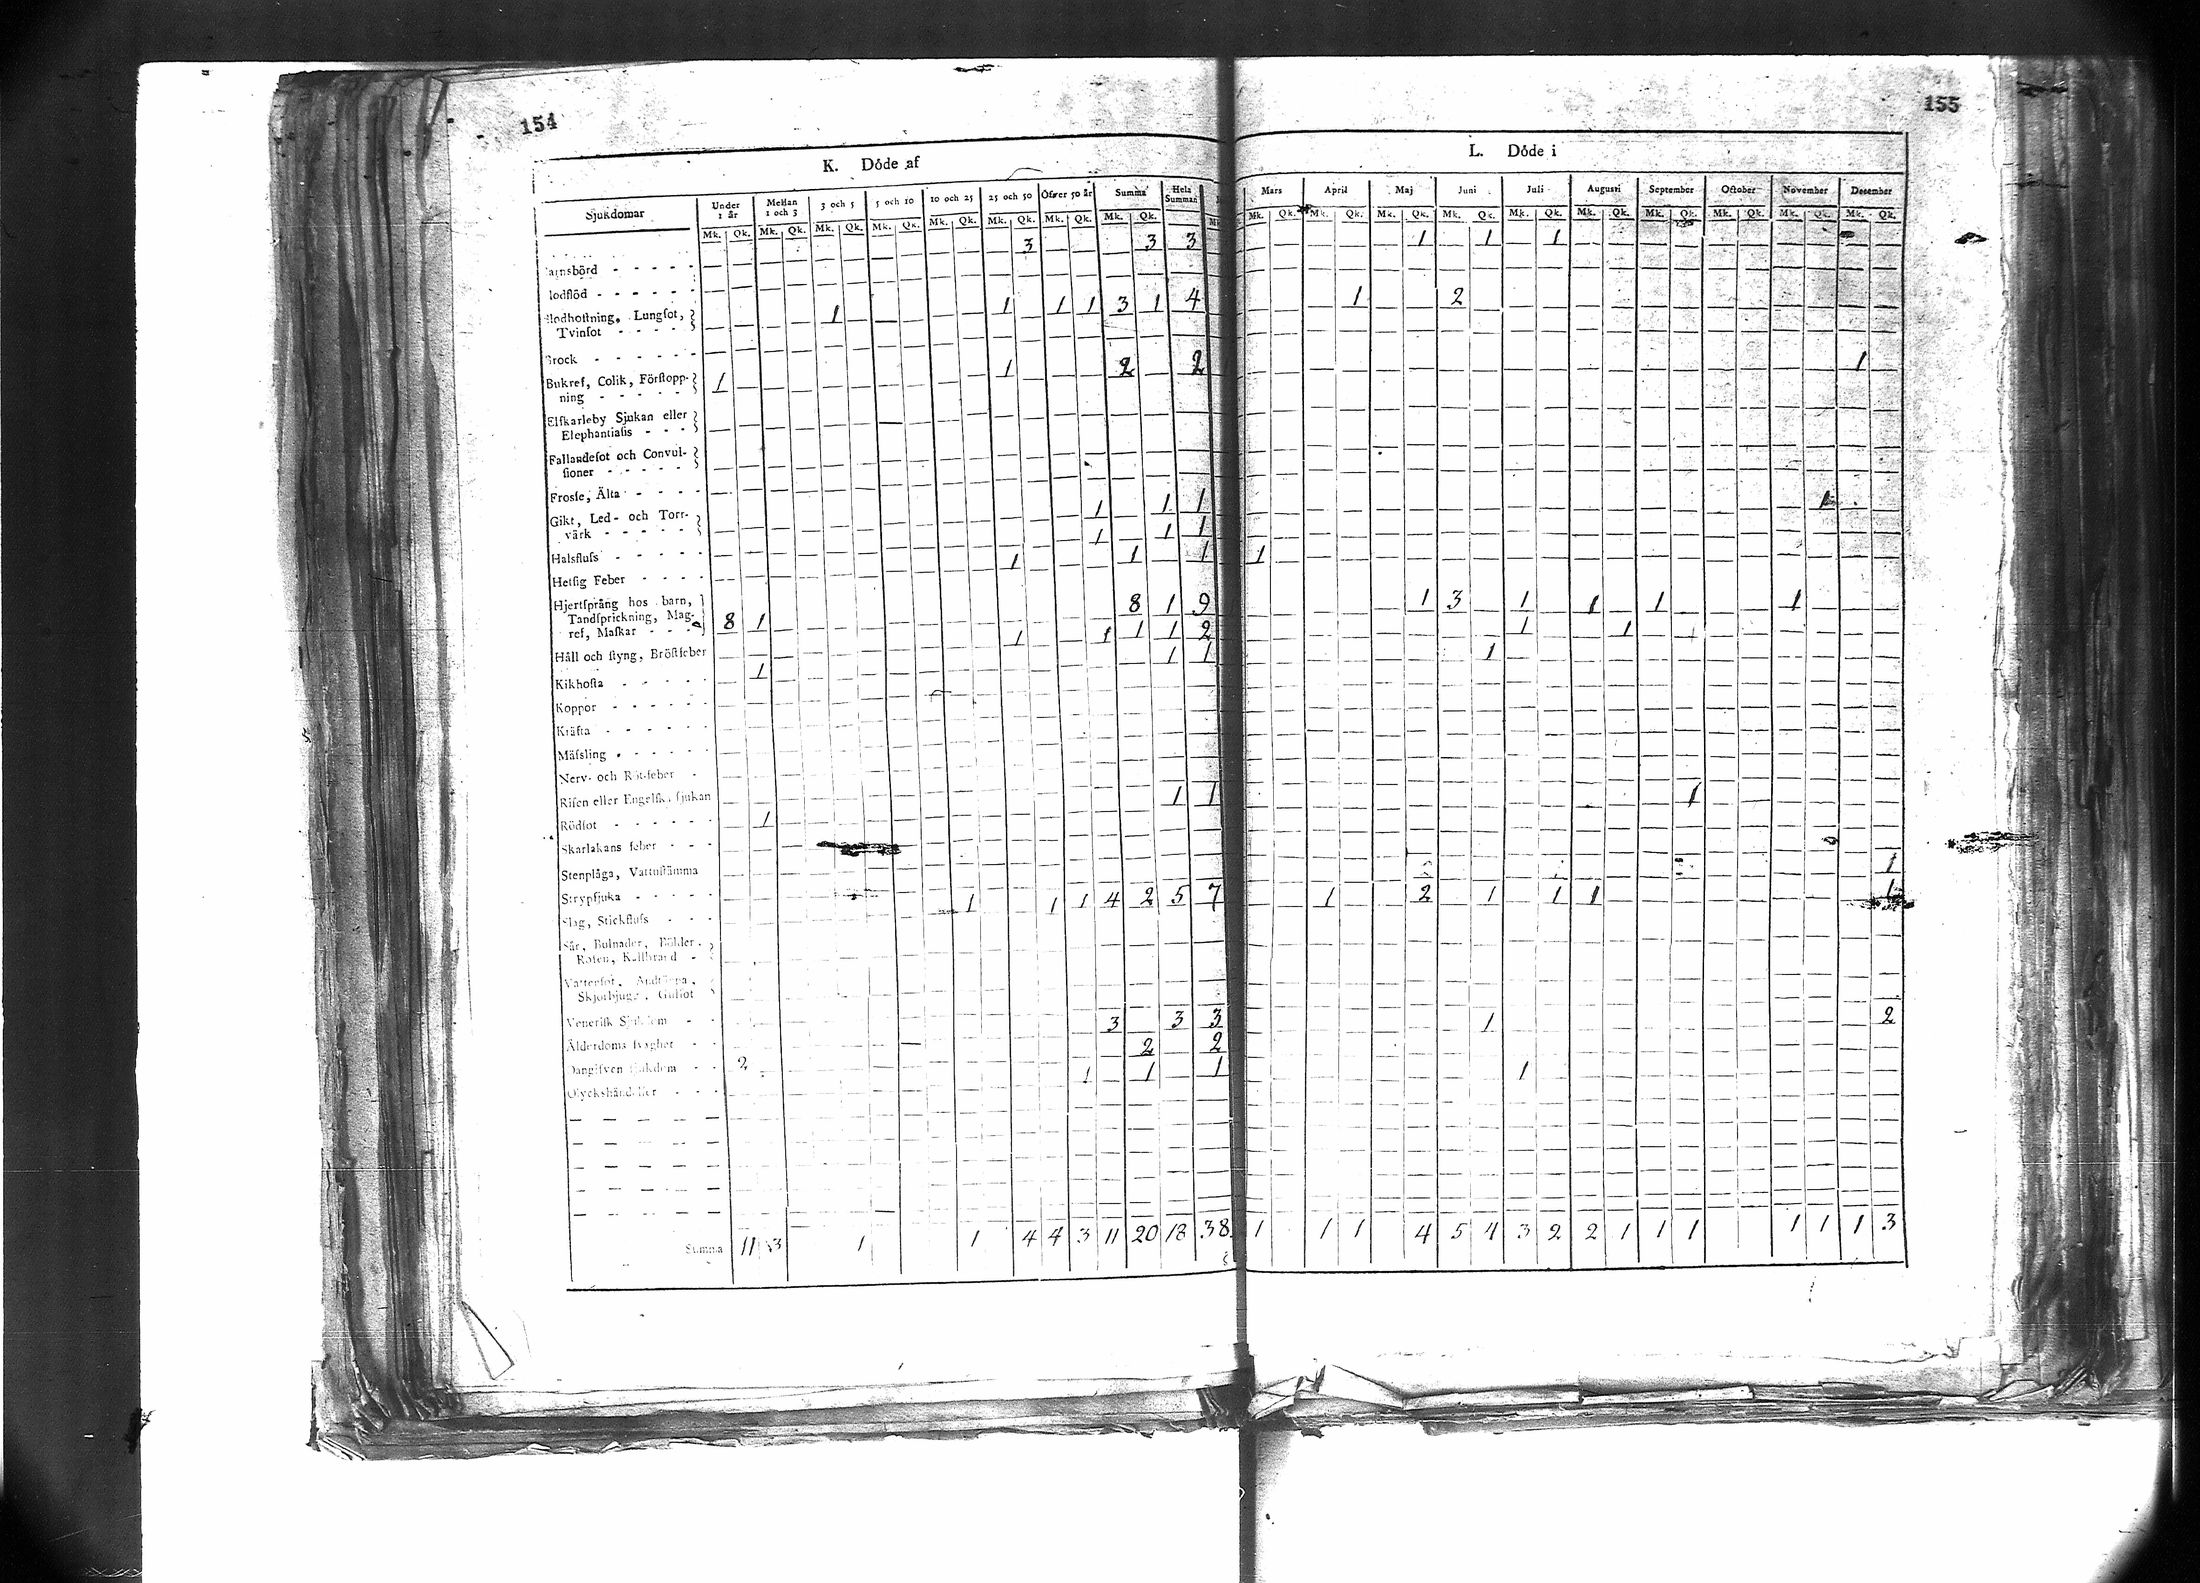 154
K. Döde af
Sjukdomar Under 1 år Mellan 1 och 3 3 och 5 5 och 10 10 och 25 25 och 50 Öfwer 50 år Summa Hela Summan
Mk. Qk. Mk. Qk. Mk. Qk. Mk. Qk. Mk. Qk. Mk. Qk. Mk. Qk. Mk. Qk.
3 3 3
arnsbörd
lodflöd
Blodhostning, Lungsot, 1 1 1 1 3 1 4
Tvinsot
Brock
Bukref, Colik, Förstopp- 1 1 2 2
ning
Elfkarleby Sjukan eller
Elephantiasis
Fallandesot och Convul-
sioner
Frossa, Älta
Gikt, Led- och Torr- 1 1 1
värk
Halsfluss 1 1 1
Hetsig Feber 1 1 1
Hjertsprång hos barn,
Tandsprickning, Mag- 8 1 8 1 9
ref, Maskar
Håll och styng, Bröstfeber 1 1 1 1 2
Kikhosta 1 1 1
Koppor
Kräfta
Mässling
Nerv- och Röt-feber
Risen eller Engelsk. sjukan
Rödsot 1 1 1
Skarlakans feber
Stenplåga, Vattustämma
Strypsjuka
Slag, Stickfluss 1 1 1 4 2 5 7
Sår, Bulnader, Bölder,
Rosen, Kallbrand
Vattensot,
Skjörbjugg, Gulsot
Venerisk Sjukdom
Ålderdoms svaghet 3 3 3
Oangifven sjukdom 2 2 2
Olyckshändelser 1 1 1
Summa 11 3 1 1 4 4 3 11 20 18 38
155
L. Döde i
Mars April Maj Juni Juli Augusti September October November December
Mk. Qk. Mk. Qk. Mk. Qk. Mk. Qk. Mk. Qk. Mk. Qk. Mk. Qk. Mk. Qk. Mk. Qk. Mk. Qk.
1 1 1
1 2
1
1
1
1 3 1 1 1 1
1 1
1
1
1
1 2 1 1 1 1
1 2
1
1 1 1 4 5 4 3 2 2 1 1 1 1 1 1 3